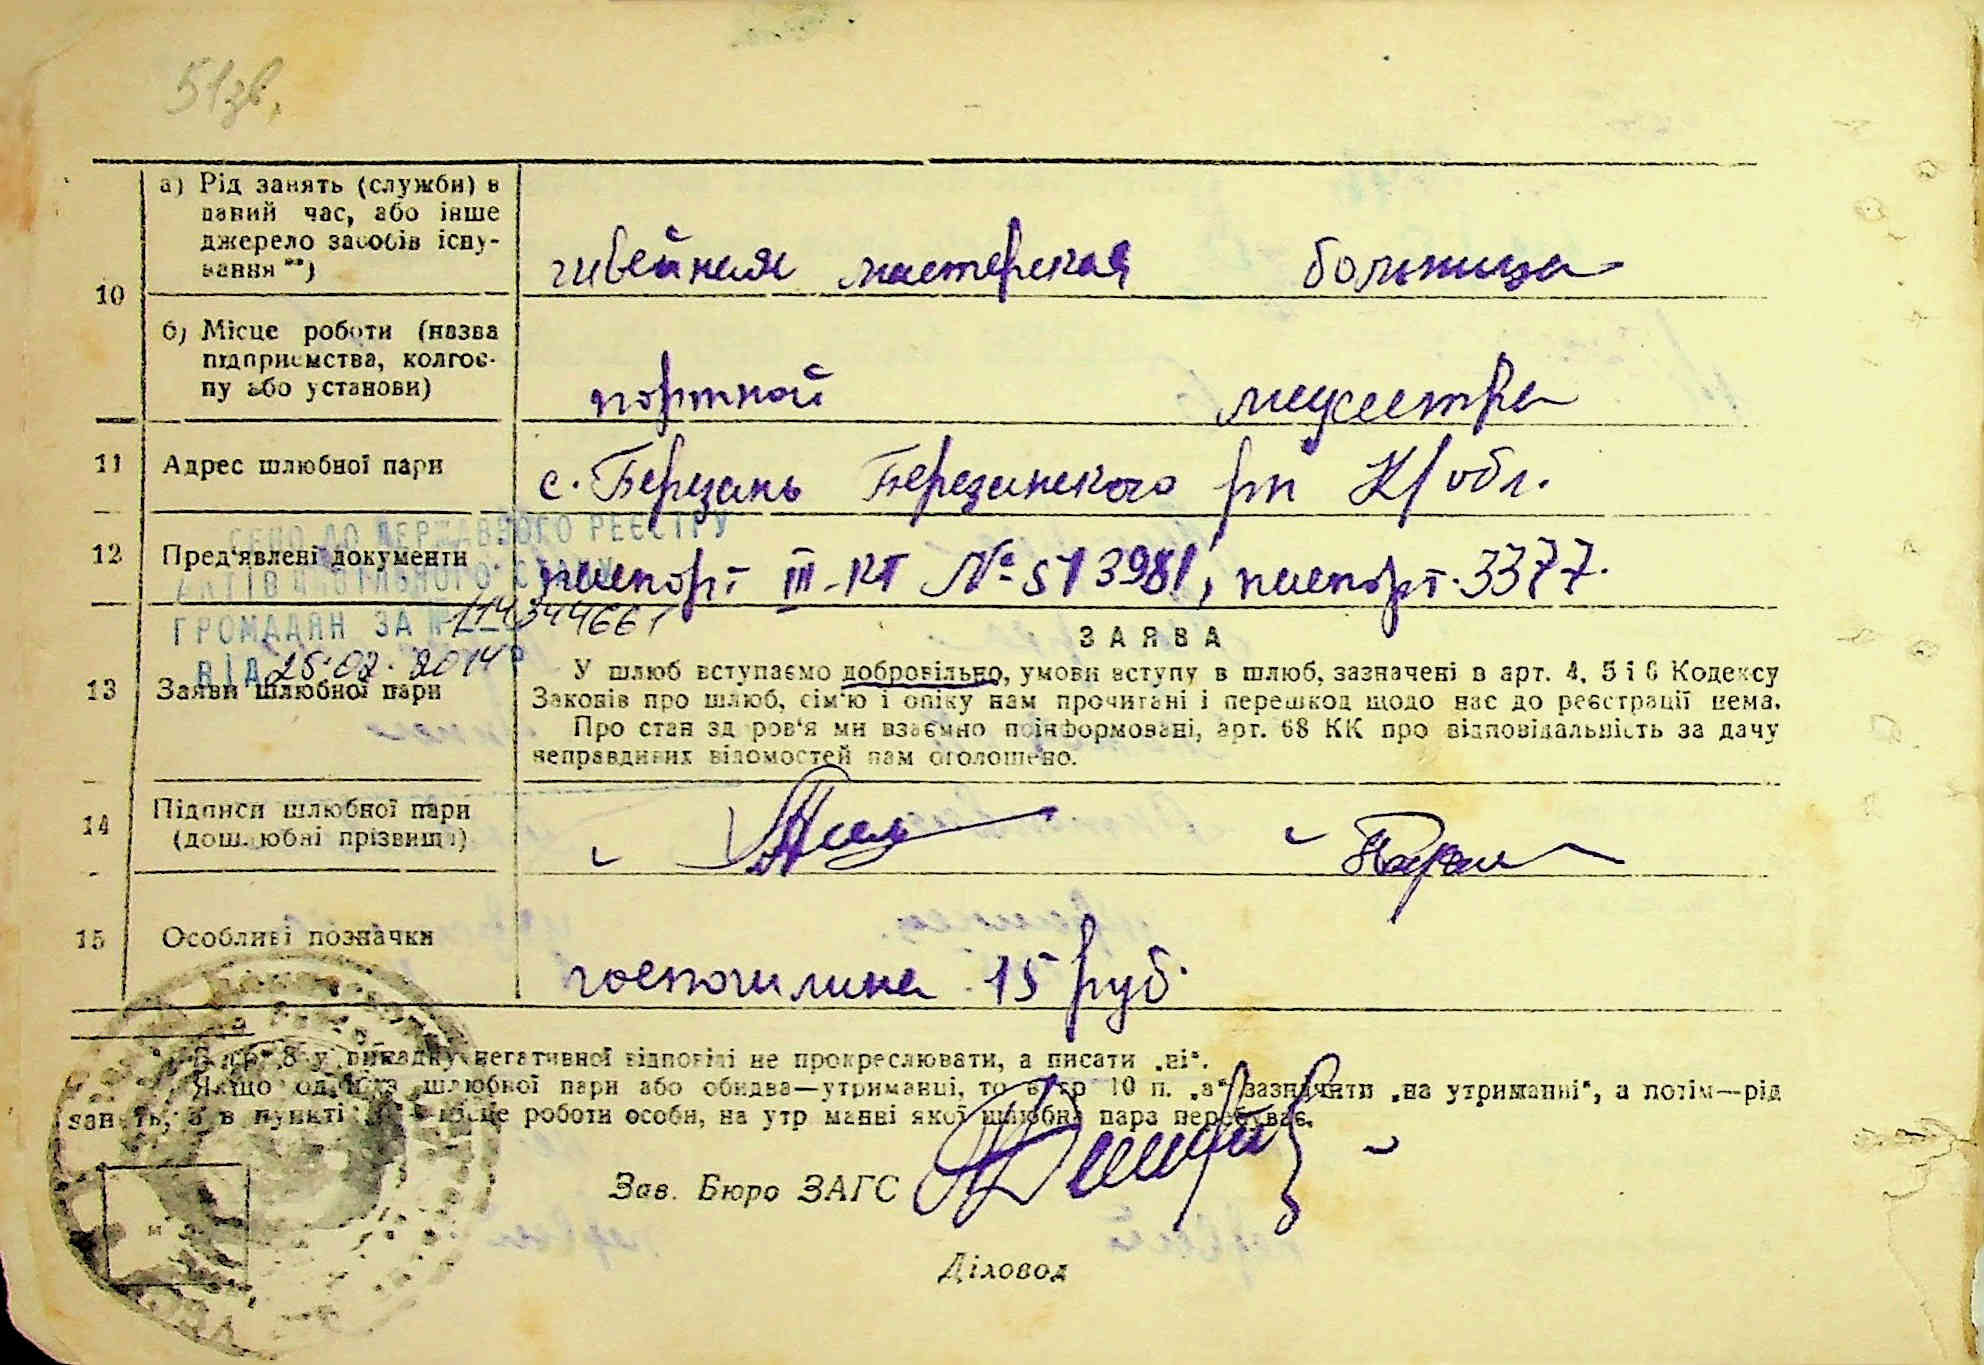 51зв.
а) Рід занять (служби) в
даний час, або інше
джерело засобів існу-
вання **)
швейная мастерская больница
10
б) Місце роботи (назва
підприємства, колгос-
пу або установи)
портной медсестра
11 Адрес шлюбної пари с. Березань Березанского рн К/обл.
12 Пред'явлені документи паспорт III-КТ № 513981, паспорт. 3377.
СЕНО ДО ДЕРЖАВНОГО РЕЄСТРУ
АКТІВ ЦИВІЛЬНОГО СТАНУ
ГРОМАДЯН ЗА № 114344661
ВІД 25.02.2014 Р
13 Заяви шлюбної пари
ЗАЯВА
У шлюб вступаємо добровільно, умови вступу в шлюб, зазначені в арт. 4, 5 і 6 Кодексу
Законів про шлюб, сім'ю і опіку нам прочитані і перешкод щодо нас до реєстрації нема.
Про стан здоров'я ми взаємно поінформовані, арт. 68 КК про відповідальність за дачу
неправдивих відомостей нам оголошено.
14 Підписи шлюбної пари
(дошлюбні прізвища)
15 Особливі позначки
госпошлина 15 руб.
у випадку негативної відповіді не прокреслювати, а писати „ні“.
Якщо один з шлюбної пари або обидва—утриманці, то в гр 10 п. „а“ зазначити „на утриманні“, а потім—рід
занять, а в пункті місце роботи особи, на утриманні якої шлюбна пара перебуває.
Зав. Бюро ЗАГС
Діловод